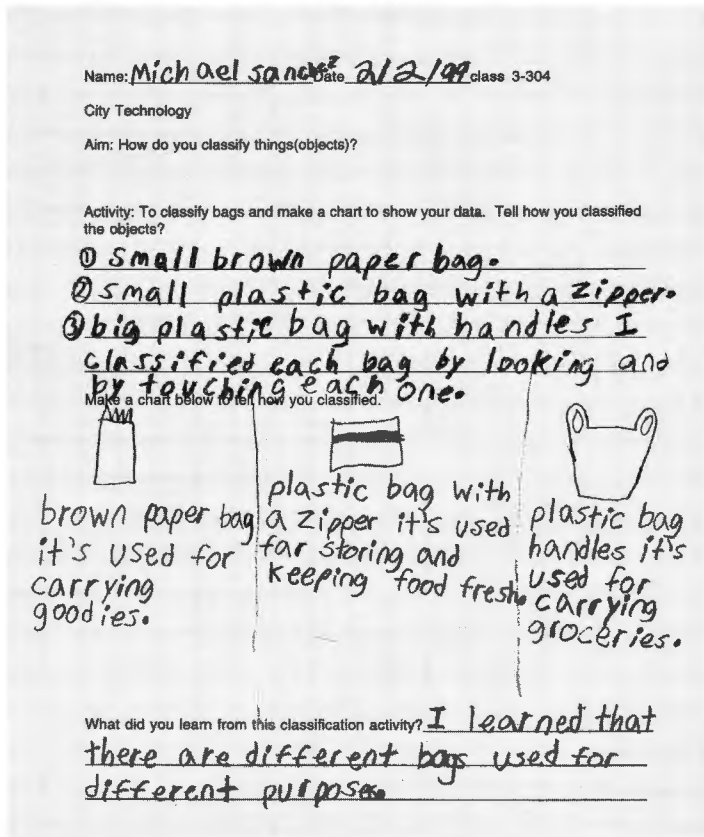 Name: Michael sanchez Date 2/2/99 class 3-304
City Technology
Aim: How do you classify things(objects)?
Activity: To classify bags and make a chart to show your data. Tell how you classified
the objects?
① Small brown paper bag.
② small plastic bag with a zipper.
③ big plastic bag with handles I
classified each bag by looking and
by touching each one.
Make a chart below to tell how you classified.
brown paper bag
it's used for
carrying
goodies.
plastic bag with
a zipper it's used
for storing and
keeping food fresh.
plastic bag
handles it's
used for
carrying
groceries.
What did you learn from this classification activity? I learned that
there are different bags used for
different purposes.